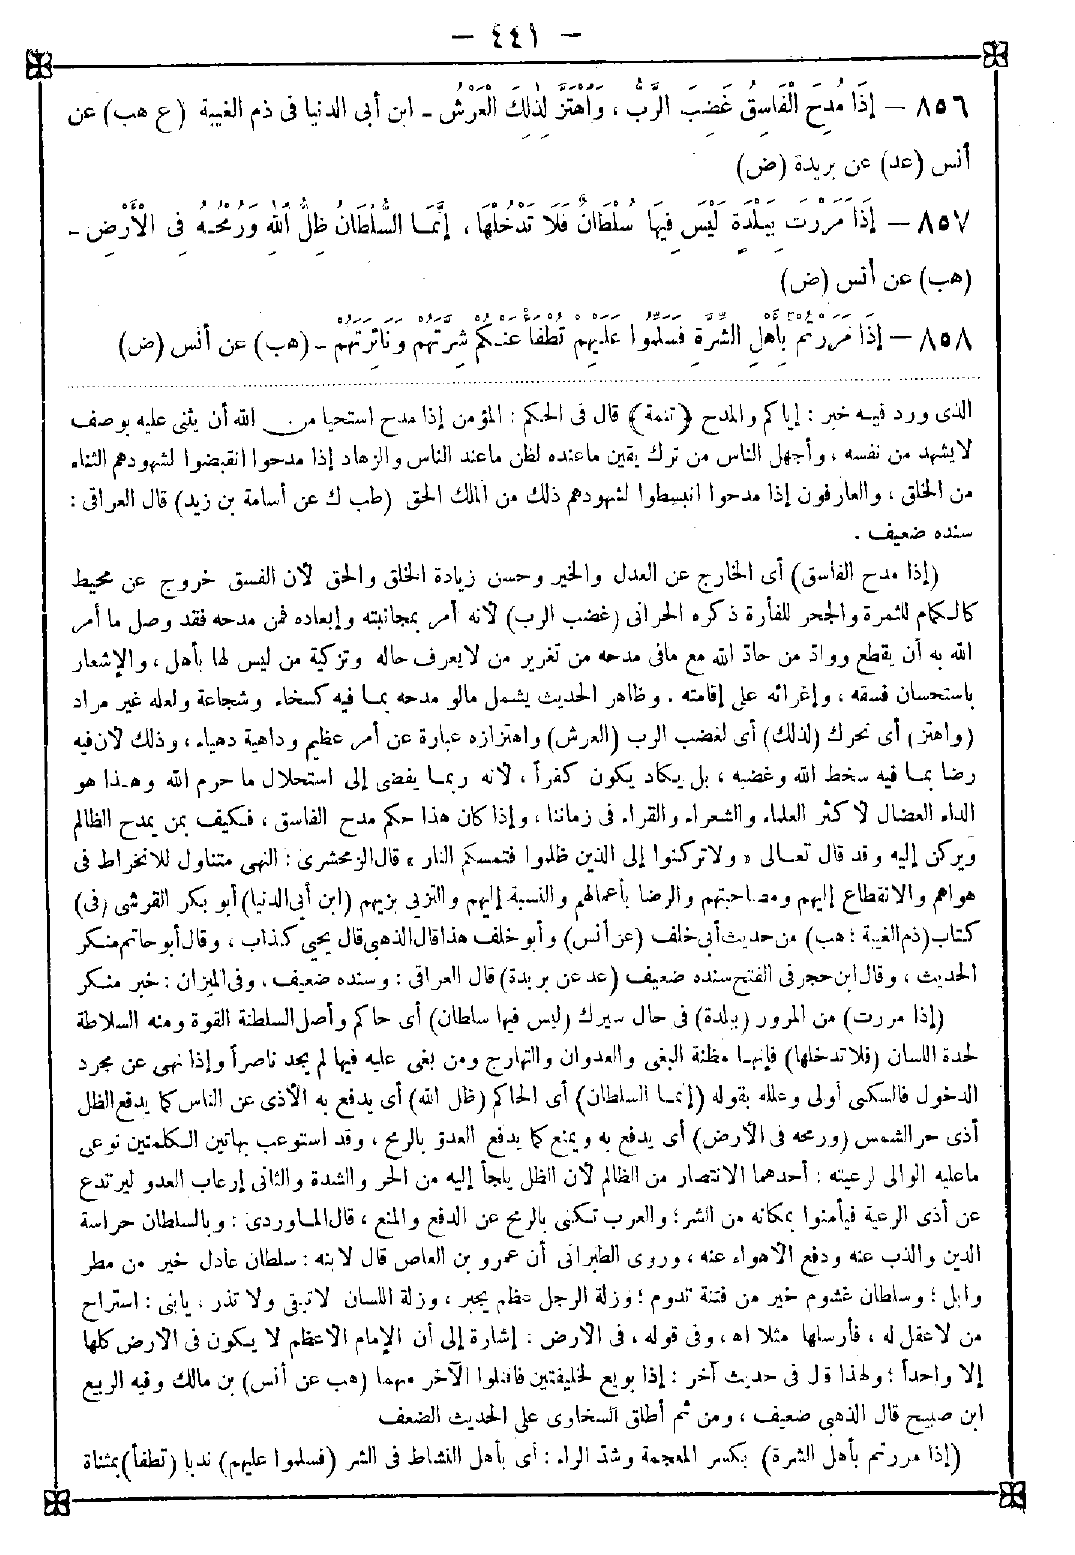 — ٤٤١ —
٨٥٦ — إِذَا مُدِحَ الْفَاسِقُ غَضِبَ الرَّبُّ ، وَاهْتَزَّ لِذٰلِكَ الْعَرْشُ ـ ابن أبى الدنيا فى ذم الغيبة (ع هب) عن
أنس (عد) عن بريدة (ض)
٨٥٧ — إِذَا مَرَرْتَ بِبَلْدَةٍ لَيْسَ فِيهَا سُلْطَانٌ فَلَا تَدْخُلْهَا ، إِنَّمَا السُّلْطَانُ ظِلُّ اللهِ وَرُمْحُهُ فِى الْأَرْضِ ـ
(هب) عن أنس (ض)
٨٥٨ — إِذَا مَرَرْتُمْ بِأَهْلِ الشِّرَّةِ فَسَلِّمُوا عَلَيْهِمْ تُطْفَأْ عَنْكُمْ شِرَّتُهُمْ وَنَائِرَتُهُمْ ـ (هب) عن أنس (ض)
الذى ورد فيه خبر : إياكم والمدح (تتمة) قال فى الحكم : المؤمن إذا مدح استحيا من الله أن يثنى عليه بوصف
لايشهد من نفسه ، وأجهل الناس من ترك يقين ماعنده لظن ماعند الناس والزهاد إذا مدحوا انقبضوا لشهودهم الثناء
من الخلق ، والعارفون إذا مدحوا انبسطوا لشهودهم ذلك من الملك الحق (طب ك عن أسامة بن زيد) قال العراقى :
سنده ضعيف .
(إذا مدح الفاسق) أى الخارج عن العدل والخير وحسن زيادة الخلق والحق لأن الفسق خروج عن محيط
كالكمام للثمرة والجحر للفأرة ذكره الحرانى (غضب الرب) لأنه أمر بمجانبته وإبعاده فمن مدحه فقد وصل ما أمر
الله به أن يقطع وواد من حاد الله مع مافى مدحه من تغرير من لايعرف حاله وتزكية من ليس لها بأهل ، والإشعار
باستحسان فسقه ، وإغرائه على إقامته . وظاهر الحديث يشمل مالو مدحه بما فيه كسخاء وشجاعة ولعله غير مراد
(واهتز) أى تحرك (لذلك) أى لغضب الرب (العرش) واهتزازه عبارة عن أمر عظيم وداهية دهياء ، وذلك لأن فيه
رضا بما فيه سخط الله وغضبه ، بل يكاد يكون كفراً ، لأنه ربما يفضى إلى استحلال ما حرم الله وهذا هو
الداء العضال لأكثر العلماء والشعراء والقراء فى زماننا ، وإذا كان هذا حكم مدح الفاسق ، فكيف بمن يمدح الظالم
ويركن إليه وقد قال تعالى « ولاتركنوا إلى الذين ظلموا فتمسكم النار » قال الزمخشرى : النهى متناول للانخراط فى
هواهم والانقطاع إليهم ومصاحبتهم والرضا بأعمالهم والنسبة إليهم والتزيى بزيهم (ابن أبى الدنيا) أبو بكر القرشى (فى)
كتاب (ذم الغيبة ؛ هب) من حديث أبى خلف (عن أنس) وأبو خلف هذا قال الذهبى قال يحيى كذاب ، وقال أبو حاتم منكر
الحديث ، وقال ابن حجر فى الفتح سنده ضعيف (عد عن بريدة) قال العراقى : وسنده ضعيف ، وفى الميزان : خبر منكر
(إذا مررت) من المرور (ببلدة) فى حال سيرك (ليس فيها سلطان) أى حاكم وأصل السلطنة القوة ومنه السلاطة
لحدة اللسان (فلا تدخلها) فإنها مظنة البغى والعدوان والتهارج ومن بغى عليه فيها لم يجد ناصراً وإذا نهى عن مجرد
الدخول فالسكنى أولى وعلله بقوله (إنما السلطان) أى الحاكم (ظل الله) أى يدفع به الأذى عن الناس كما يدفع الظل
أذى حر الشمس (ورمحه فى الأرض) أى يدفع به ويمنع كما يدفع العدو بالرمح ، وقد استوعب بهاتين الكلمتين نوعى
ماعليه الوالى لرعيته : أحدهما الانتصار من الظالم لأن الظل يلجأ إليه من الحر والشدة والثانى إرعاب العدو ليرتدع
عن أذى الرعية فيأمنوا بمكانه من الشر ؛ والعرب تكنى بالرمح عن الدفع والمنع ، قال الماوردى : وبالسلطان حراسة
الدين والذب عنه ودفع الأهواء عنه ، وروى الطبرانى أن عمرو بن العاص قال لابنه : سلطان عادل خير من مطر
وابل ؛ وسلطان غشوم خير من فتنة تدوم ؛ وزلة الرجل عظم يجبر ، وزلة اللسان لاتبقى ولا تذر ، يابنى : استراح
من لاعقل له ، فأرسلها مثلا اه ، وفى قوله ، فى الأرض : إشارة إلى أن الإمام الأعظم لا يكون فى الأرض كلها
إلا واحداً ؛ ولهذا قال فى حديث آخر : إذا بويع لخليفتين فاقتلوا الآخر منهما (هب عن أنس) بن مالك وفيه الربيع
ابن صبيح قال الذهبى ضعيف ، ومن ثم أطلق السخاوى على الحديث الضعف
(إذا مررتم بأهل الشرة) بكسر المعجمة وشد الراء : أى بأهل النشاط فى الشر (فسلموا عليهم) ندبا (تطفأ) بمثناة